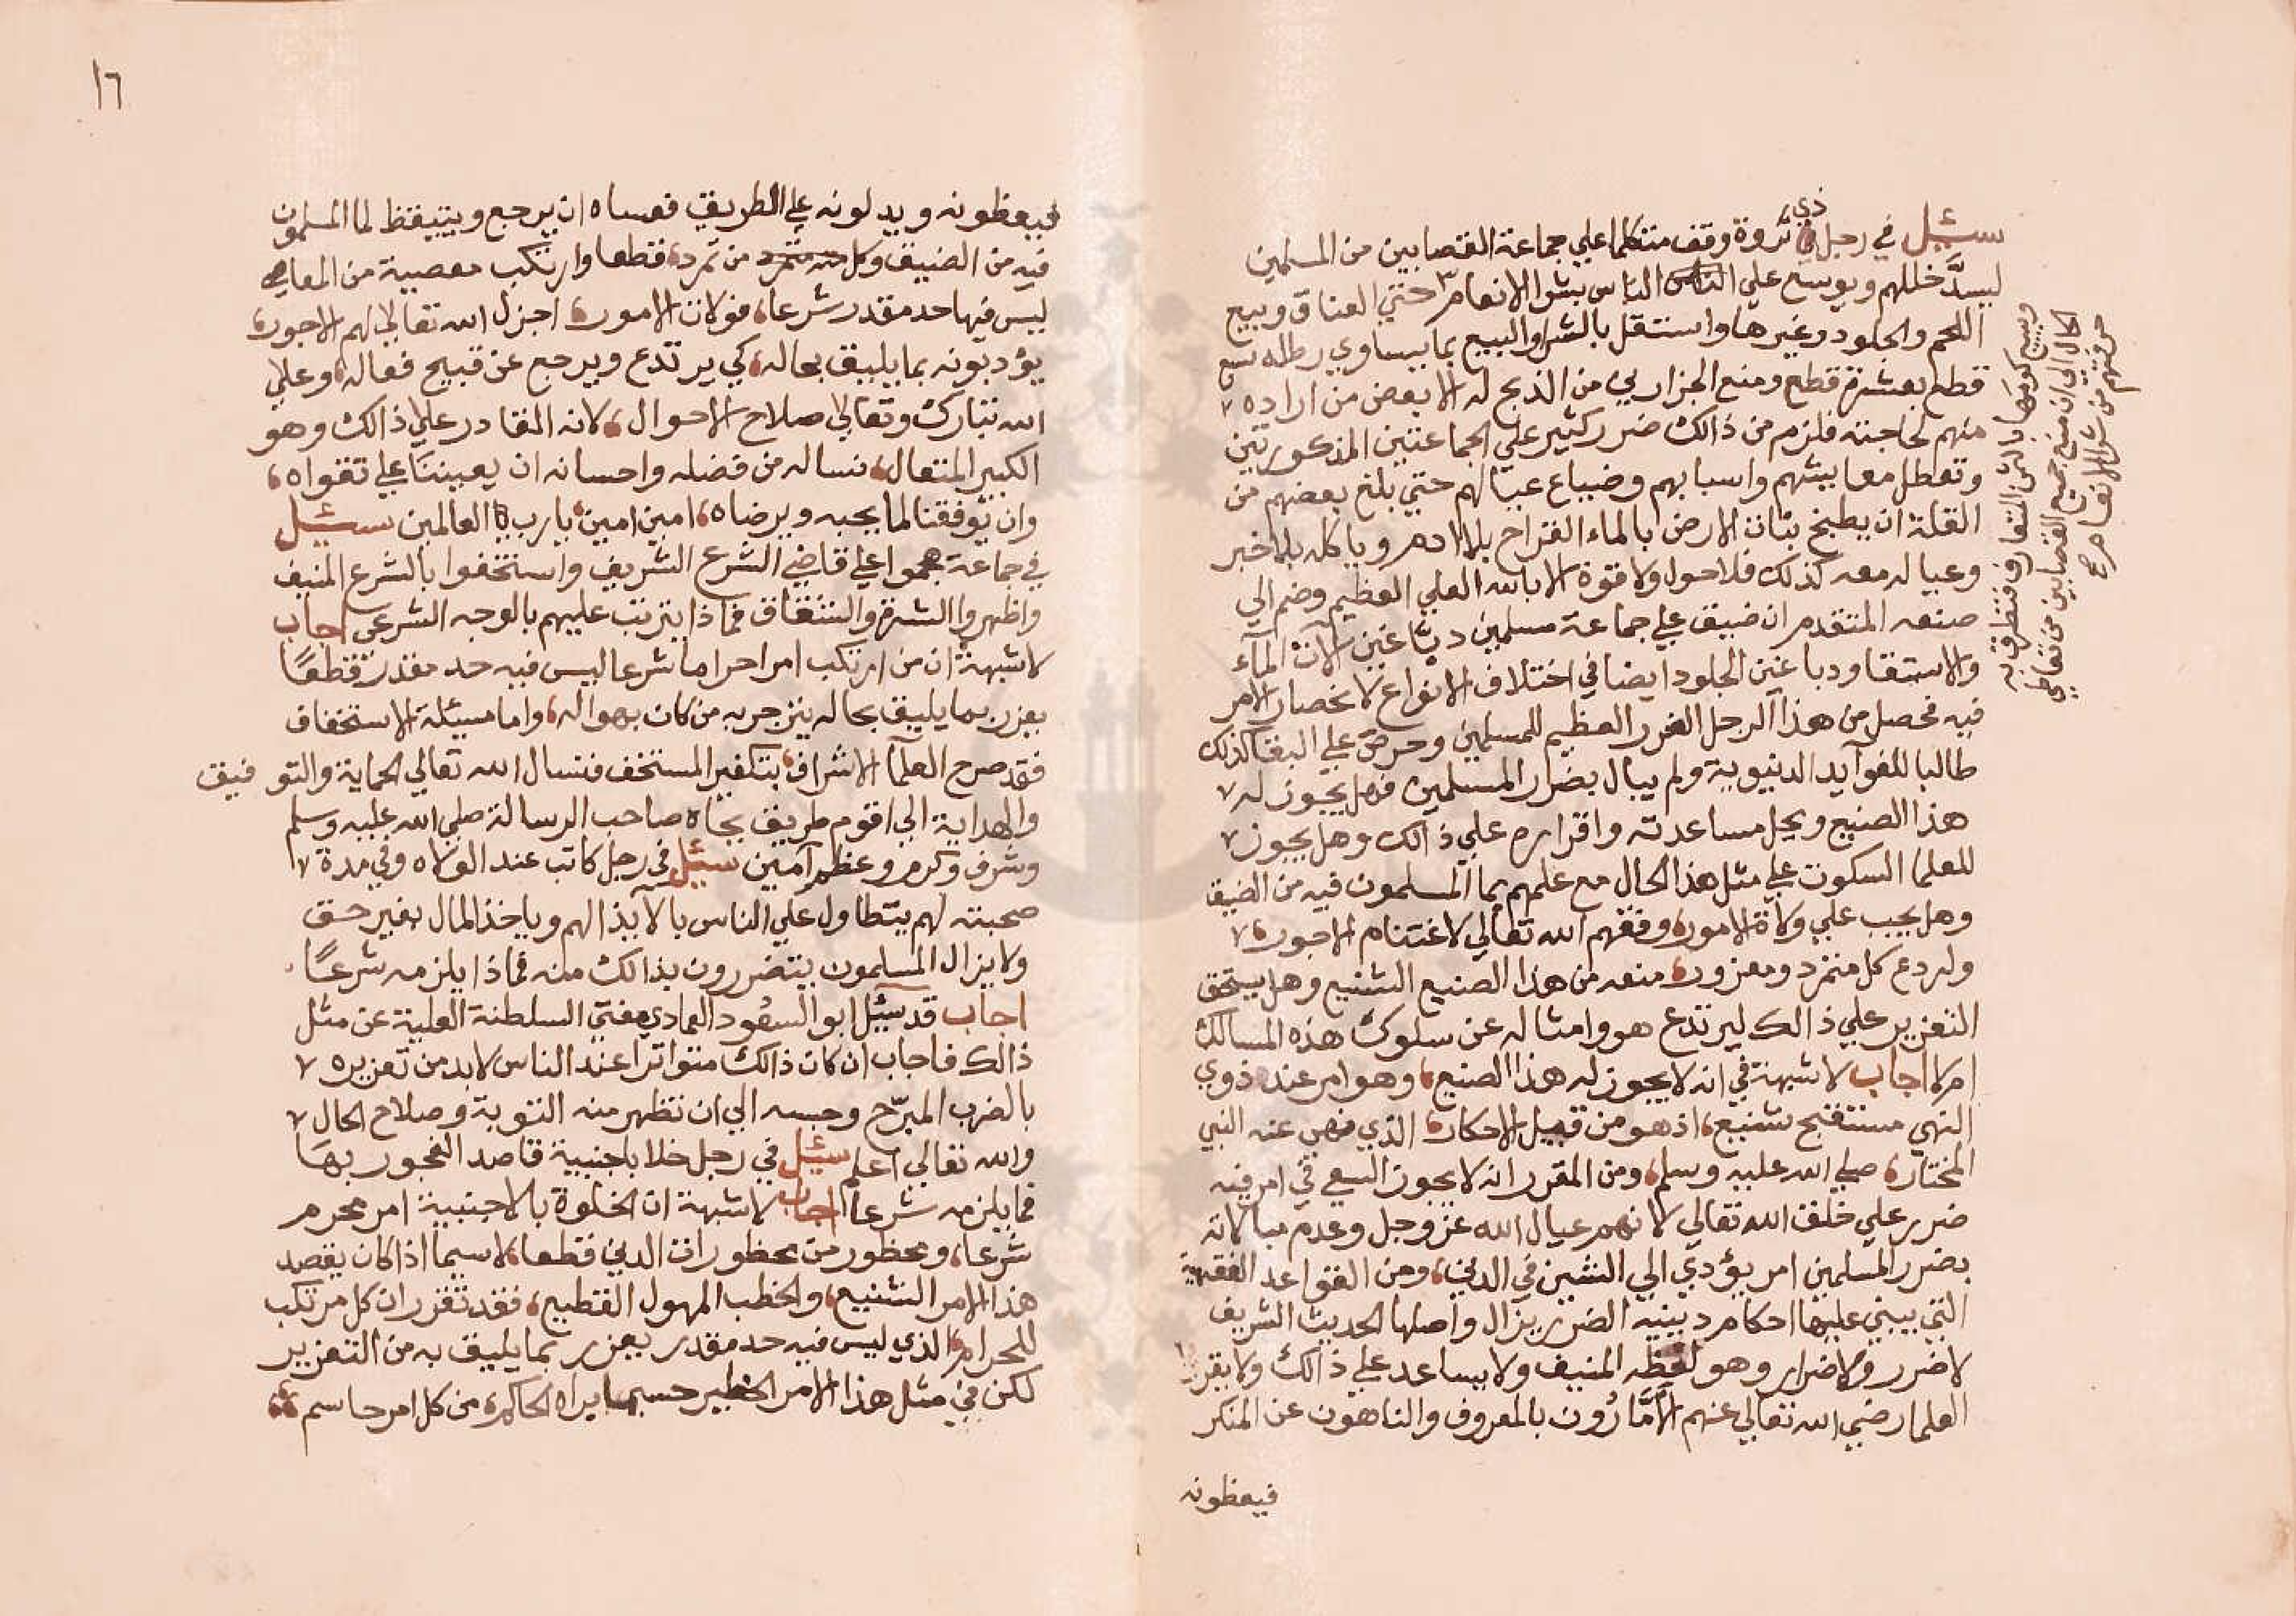 سئيل في رجل ذي ثروة وقف متكلما علي جماعة القصابين من المسلمين
ليسدَّ خللهم ويوسع علي الناس الناس بشرا الانعام ٣ حتي العناق وبيع
اللحم والجلود وغيرها واستقل بالشرا والبيع بما يساوي رطله بسبع
قطع بعشرة قطع ومنع الجزارين من الذبح له الا بعض من اراده
منهم لحاجته فلزم من ذالك ضرر كثير علي الجماعتين المذكورتين
وتعطل معايشهم واسبابهم وضياع عيالهم حتي بلغ بعضهم من
القلة ان يطبخ نبات الارض بالماء القراح بلا ادم وياكله بلا خبز
وعياله معه كذلك فلا حول ولا قوة الا بالله العلي العظيم وضم الي
صنعه المتقدم ان ضيق علي جماعة مسلمين دباغين لآلات المآء
والاستقا ودباغين الجلود ايضا في اختلاف الانواع لانحصار الامر
فيه فحصل من هذا الرجل الضرر العظيم للمسلمين وحرص علي البقا كذلك
طالبا للفوآيد الدنيوية ولم يبال بضرار المسلمين فهل يجوز له
هذا الصنيع ويحل مساعدته واقراره علي ذالك وهل يجوز
للعلما السكوت علي مثل هذا الحال مع علمهم بما المسلمون فيه من الضيق
وهل يجب علي ولاة الامور وفقهم الله تعالي لاغتنام الاجور
ولردع كل متمرد ومغرور منعه من هذا الصنيع الشنيع وهل يستحق
التعزير علي ذالك ليرتدع هو وامثاله عن سلوك هذه المسالك
ام لا اجاب لا شبهة في انه لا يجوز له هذا الصنيع وهو امر عند ذوي
النهي مستقبح شنيع اذ هو من قبيل الاحكار الذي نهي عنه النبي
المختار صلي الله عليه وسلم ومن المقرر انه لا يجوز السعي في امر فيه
ضرر علي خلق الله تعالي لانهم عيال الله عز وجل وعدم مبالاته
بضرر المسلمين امر يؤدي الي الشين في الدين ومن القواعد الفقهية
التي يبني عليها احكام دينيه الضرر يزال واصلها الحديث الشريف
لا ضرر ولا ضرار وهو لفظه المنيف ولا يساعد علي ذالك ولا يقر
العلما رضي الله تعالي عنهم الامَّارُون بالمعروف والناهون عن المنكر
فيعظونه
وبيع كومها
الحال الي ان منع جميع القصابين من تعاطي
حرفتهم من شرا الانعام صح
١٦
فيعظونه ويدلونه علي الطريق فعساه ان يرجع ويتيقظ لما المسلمون
فيه من الضيق وكل من تمرد قطعا وارتكب معصية من المعاصي
ليس فيها حد مقدر شرعا فولات الامور اجزل الله تعالي لهم الاجور
يؤدبونه بما يليق بحاله كي يرتدع ويرجع عن قبيح فعاله وعلي
الله تبارك وتعالي صلاح الاحوال لانه القادر علي ذالك وهو
الكبير المتعال نساله من فضله واحسانه ان يعيننا علي تقواه
وان يوفقنا لما يحبه ويرضاه امين امين يا رب العالمين سئيل
في جماعة هجموا علي قاضي الشرع الشريف واستخفوا بالشرع المنيف
واظهروا الشرة والشقاق فماذا يترتب عليهم بالوجه الشرعي اجاب
لا شبهة ان من ارتكب امرا حراما شرعا ليس فيه حد مقدر قطعًا
يعزر بما يليق بحاله ينزجر به من كان بهواله واما مسئلة الاستخفاف
فقد صرح العلمآ الاشراف بتكفير المستخف فنسال الله تعالي الحماية والتوفيق
والهداية الي اقوم طريق بجاه صاحب الرسالة صلي الله عليه وسلم
وشرف وكرم وعظم آمين سئيل في رجل كاتب عند الولاه وفي مدة
صحبته لهم يتطاول علي الناس بالايذا لهم وياخذ المال بغير حق
ولا يزال المسلمون يتضررون بذالك منه فماذا يلزمه شرعًا
اجاب قد سئيل ابو السعُود العمادي مفتي السلطنة العلية عن مثل
ذالك فاجاب ان كان ذالك متواترا عند الناس لا بد من تعزيره
بالضرب المبرّح وحبسه الي ان تظهر منه التوبة وصلاح الحال
والله تعالي اعلم سئيل في رجل خلا باجنبية قاصد الفجور بهَا
فما يلزمه شرعا اجاب لا شبهة ان الخلوة بالاجنبية امر محرم
شرعا ومحظور من محظورات الدين قطعا لا سيما اذا كان يقصد
هذا الامر الشنيع والخطب المهول الفظيع فقد تقرر ان كل مرتكب
للحرام الذي ليس فيه حد مقدر يعزر بما يليق به من التعزير
لكن في مثل هذا الامر الخطير حسبما يراه الحاكم من كل امر حاسم